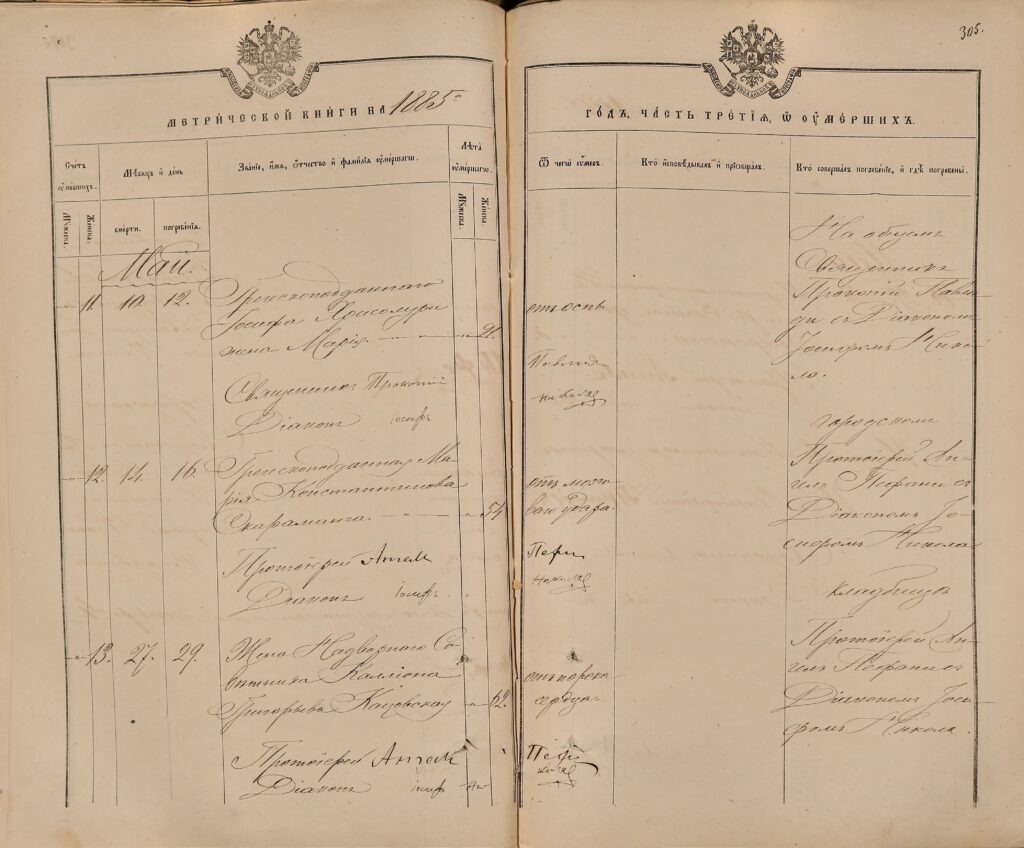 305.
МЕТРИ́ЧЕСКОЙ КНИ́ГИ НА 1885
ГО́ДЪ, ЧА́СТЬ ТРЕ́ТІЯ, Ѡ ОУМЕ́РШИХЪ.
Сче́тъ оуме́ршихъ.
Му́жеска.
Же́нска.
Мѣ́сяцъ и де́нь
сме́рти.
погребе́нїя.
Зва́нїе, и́мя, ѻ́тчество и фами́лїя оуме́ршагѡ.
Лѣ́та оуме́ршагѡ.
Му́жеска.
Же́нска.
Ѿ чегѡ̀ оу́меръ.
Кто̀ и҆сповѣ́дывалъ и҆ прїѡбща́лъ.
Кто̀ соверша́лъ погребе́нїе, и҆ гдѣ̀ погребены̀.
Май.
11. 10. 12.
Грекоподданнаго
Іосифа
жена Марія
21.
отъ оспы
На общемъ
Священникъ
Прокопій
съ Діакономъ
Іосифомъ Никола.
Священникъ Прокопій
Діаконъ Іосифъ
Николa
12. 14. 16.
Грекоподданная Ма-
рія Константинова
Скараманга.
54
отъ мозго-
ваго удара.
городскомъ
Протоіерей Ан-
гелъ Пефани съ
Діакономъ Іо-
сифомъ Никола
Протоіерей Ангелъ
Діаконъ Іосифъ
13. 27. 29.
Жена Надворнаго Со-
вѣтника Калліопа
Григорьева
62.
отъ порока
сердца.
кладбищѣ
Протоіерей Ан-
гелъ Пефани съ
Діакономъ Іоси-
фомъ Никола.
Протоіерей Ангелъ
Діаконъ Іосифъ